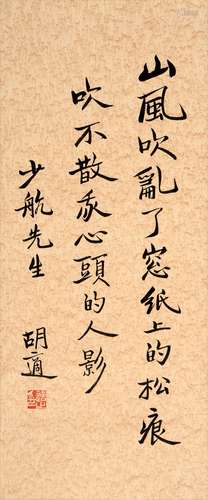 山風吹亂了窓紙上的松痕
吹不散我心頭的人影
少航先生
胡適